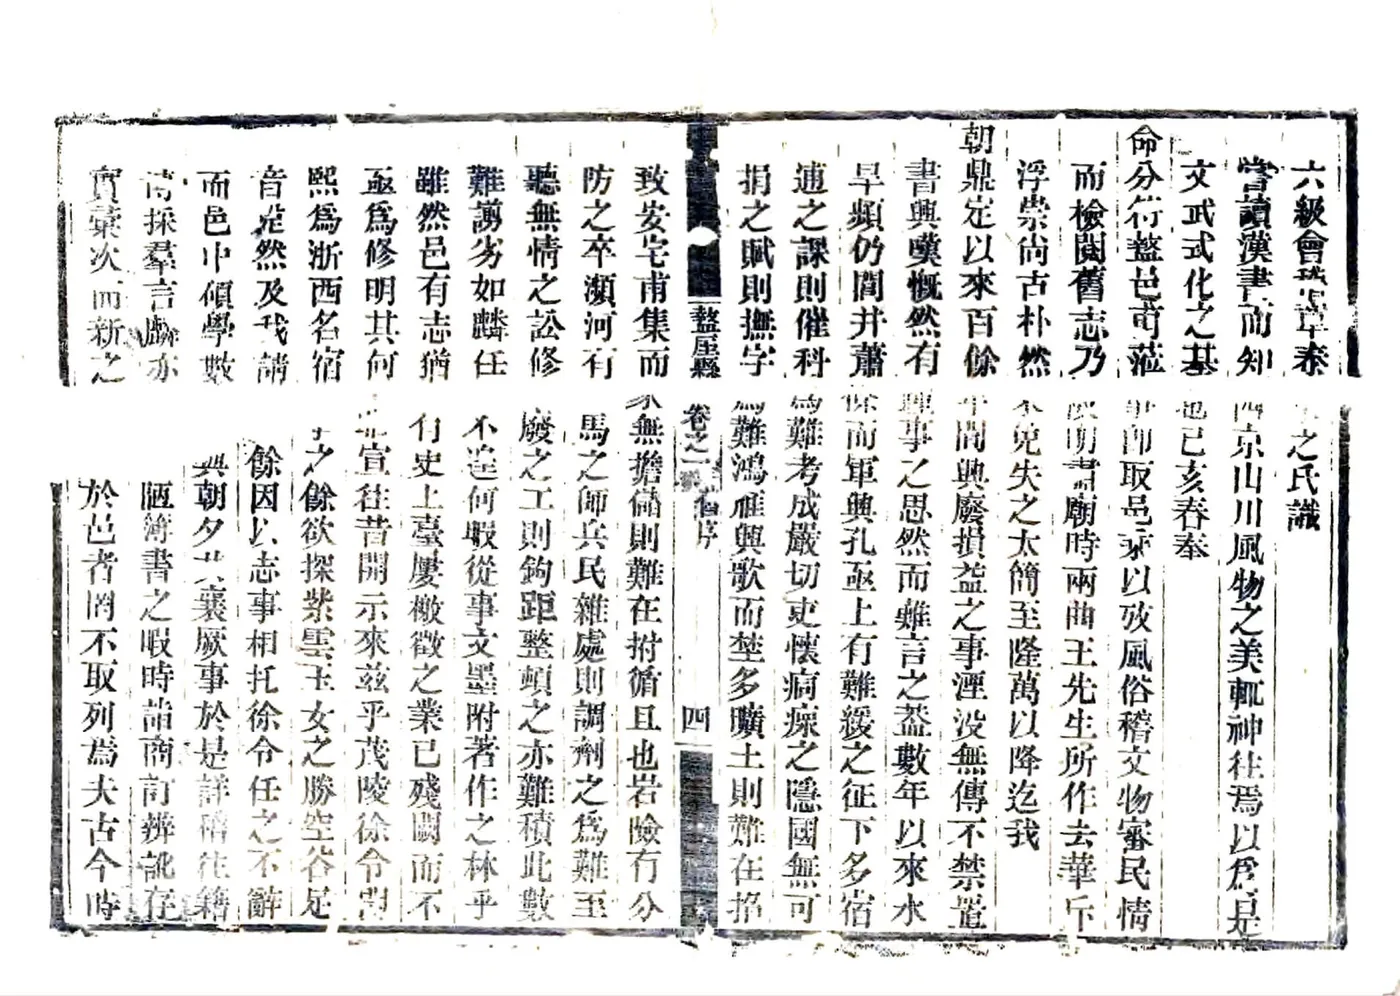 六級會章泰之氏識
嘗讀漢書而知西京山川風物之美輒神往焉以爲是
文武式化之基也己亥春奉
命分符盩邑苟蒞事卽取邑乘以攷風俗稽文物審民情
而檢閱舊志乃故明肅廟時兩曲王先生所作去華斥
浮崇尚古朴然不免失之太簡至隆萬以降迄我
朝鼎定以來百餘年間興廢損益之事湮沒無傳不禁置
書興嘆慨然有理事之思然而難言之葢數年以來水
旱頻仍閭井蕭條而軍興孔亟上有難緩之征下多宿
逋之課則催科爲難考成嚴切吏懷瘸瘝之隱國無可
捐之賦則撫字爲難鴻雁興歌而埜多曠土則難在招
致安宅甫集而家無擔儲則難在拊循且也岩險有分
防之卒瀕河有馬之師兵民雜處則調劑之爲難至
聽無情之訟修廢之工則鉤距整頓之亦難積此數
難謭劣如麟任不遑何暇從事文墨附著作之林乎
雖然邑有志猶有史上臺屢檄徵之業已殘闕而不
亟爲修明其何宣往昔開示來兹乎茂陵徐令
熙爲浙西名宿之餘欲探紫雲玉女之勝空谷足
音茫然及我請餘因以志事相托徐令任之不辭
而邑中傾學數朝夕共襄厥事於是詳稽往籍
採羣言亦簿書之暇時詣商訂辨訛存
實彙次而新之於邑者罔不取列焉夫古今時
盩厔縣 卷之一 舊序 四